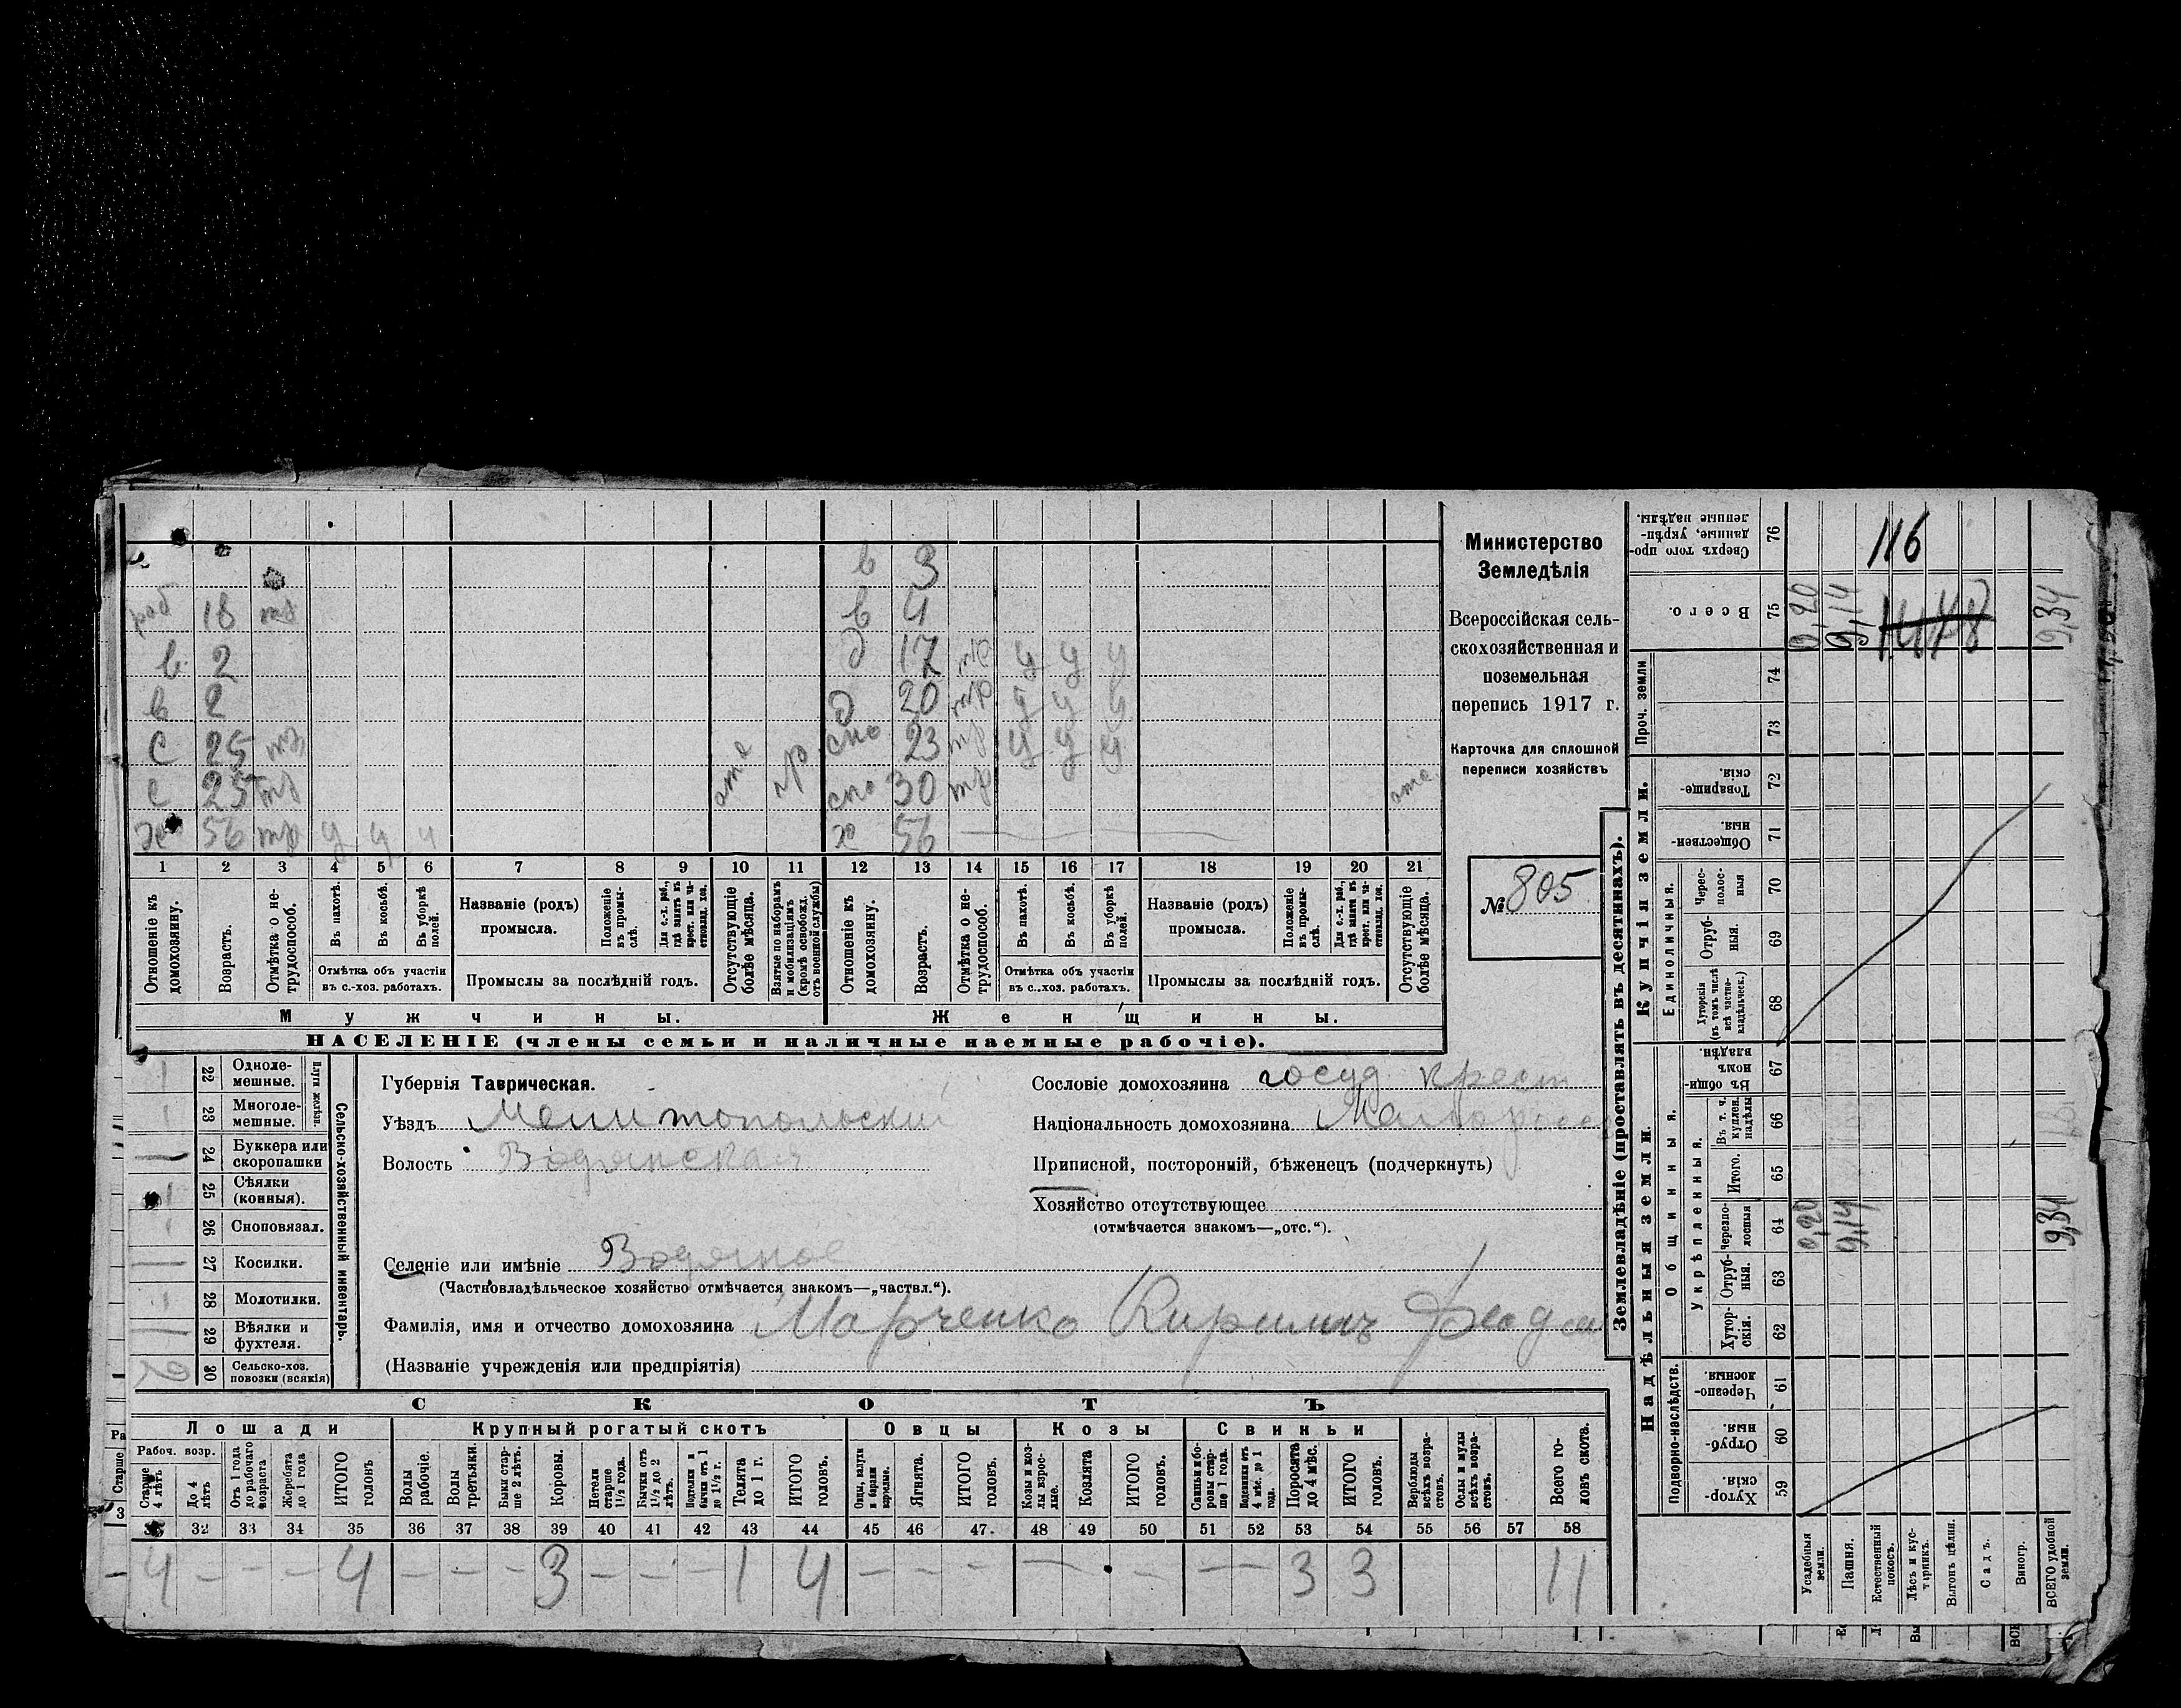 в 3
раб 18 тр в 4
в 2 д 17 тр у у у
в 2 д 20 тр у у у
с 25 тр сно 23 тр у у у
с 25 тр отс пр сно 30 тр отс.
х 56 тр у у у ж 56
1 2 3 4 5 6 7 8 9 10 11 12 13 14 15 16 17 18 19 20 21
Отношеніе къ домохозяину.
Возрастъ.
Отмѣтка о нетрудоспособ.
Въ пахотѣ.
Въ косьбѣ.
Въ уборкѣ полей.
Отмѣтка объ участіи
въ с.-хоз. работахъ.
Названіе (родъ)
промысла.
Положеніе въ промыслѣ.
Для с.-х. раб., гдѣ занятъ въ крест. или частновлад. хоз.
Промыслы за послѣдній годъ.
Отсутствующіе болѣе мѣсяца.
Взятые по наборамъ и мобилизаціямъ (кромѣ освобожд. отъ военной службы)
Отношеніе къ домохозяину.
Возрастъ.
Отмѣтка о нетрудоспособ.
Въ пахотѣ.
Въ косьбѣ.
Въ уборкѣ полей.
Отмѣтка объ участіи
въ с.-хоз. работахъ.
Названіе (родъ)
промысла.
Положеніе въ промыслѣ.
Для с.-х. раб., гдѣ занятъ въ крест. или частновлад. хоз.
Промыслы за послѣдній годъ.
Отсутствующіе болѣе мѣсяца.
Мужчины. Женщины.
НАСЕЛЕНІЕ (члены семьи и наличные наемные рабочіе).
Министерство
Земледѣлія
Всероссійская сель-
скохозяйственная и
поземельная
перепись 1917 г.
Карточка для сплошной
переписи хозяйствъ
№ 805
Сельско-хозяйственный инвентарь.
Плуги желѣзн.
1 22 Одноле-
мешные.
1 23 Многоле-
мешные.
— 24 Буккера или
скоропашки
1 25 Сѣялки
(конныя).
1 26 Сноповязал.
— 27 Косилки.
1 28 Молотилки.
— 29 Вѣялки и
фухтеля.
30 Сельско-хоз.
повозки (всякія)
Губернія Таврическая.
Уѣздъ Мелитопольский
Волость Водянская
Селеніе или имѣніе Водяное
(Частновладѣльческое хозяйство отмѣчается знакомъ—„частвл.“).
Фамилія, имя и отчество домохозяина Марченко Кириллъ Феод
(Названіе учрежденія или предпріятія)
Сословіе домохозяина госуд крест
Національность домохозяина Малоросс
Приписной, посторонній, бѣженецъ (подчеркнуть)
Хозяйство отсутствующее
(отмѣчается знакомъ—„отс.“).
СКОТЪ
Лошади Крупный рогатый скотъ Овцы Козы Свиньи
Рабоч. возр.
Старше 4 лѣтъ
До 4 лѣтъ
Отъ 1 года до рабочаго возраста
Жеребята до 1 года
ИТОГО головъ
Волы рабочіе.
Волы третьяки.
Быки старше 2 лѣтъ.
Коровы.
Нетели старше 1½ года.
Бычки отъ 1½ до 2 лѣтъ.
Подтелки и бычки отъ 1 до 1½ г.
Телята до 1 г.
ИТОГО головъ.
Овцы, валухи и бараны взрослые.
Ягнята.
ИТОГО головъ.
Козы и козлы взрослые.
Козлята
ИТОГО головъ.
Свиньи и боровы старше 1 года.
Подсвинки отъ 4 мѣс. до 1 года.
Поросята до 4 мѣс.
ИТОГО головъ.
Верблюды всѣхъ возрастовъ.
Ослы и мулы всѣхъ возрастовъ.
Всего головъ скота.
32 33 34 35 36 37 38 39 40 41 42 43 44 45 46 47. 48 49 50 51 52 53 54 55 56 57 58
4 — — — 4 — — — 3 — — — 1 4 — — — — — — — 3 3 11
Землевладѣніе (проставлять въ десятинахъ).
Надѣльныя земли. Купчія земли.
Подворно-наслѣдств. Общинныя. Укрѣпленныя. Единоличныя. Проч. земли
59 Хуторскія
60 Отрубныя.
61 Черезполосныя.
62 Хуторскія.
63 Отрубныя.
64 Черезполосныя
65 Итого.
66 Въ т. ч. куплен. надѣлы
67 Въ общинномъ владѣн.
68 Хуторскія (въ томъ числѣ всѣ частновладѣльческ.)
69 Отрубныя.
70 Чересполосныя
71 Общественныя.
72 Товарищескія.
73
74
75 Всего.
76 Сверхъ того проданные, укрѣпленные надѣлы.
Усадебныя земли. 0,20 0,20
Пашня. 9,14 9,14
Естественный покосъ.
Лѣсъ и кустарникъ.
Выгонъ цѣлин.
Садъ.
Виногр.
ВСЕГО удобной земли. 9,34 9,34
116